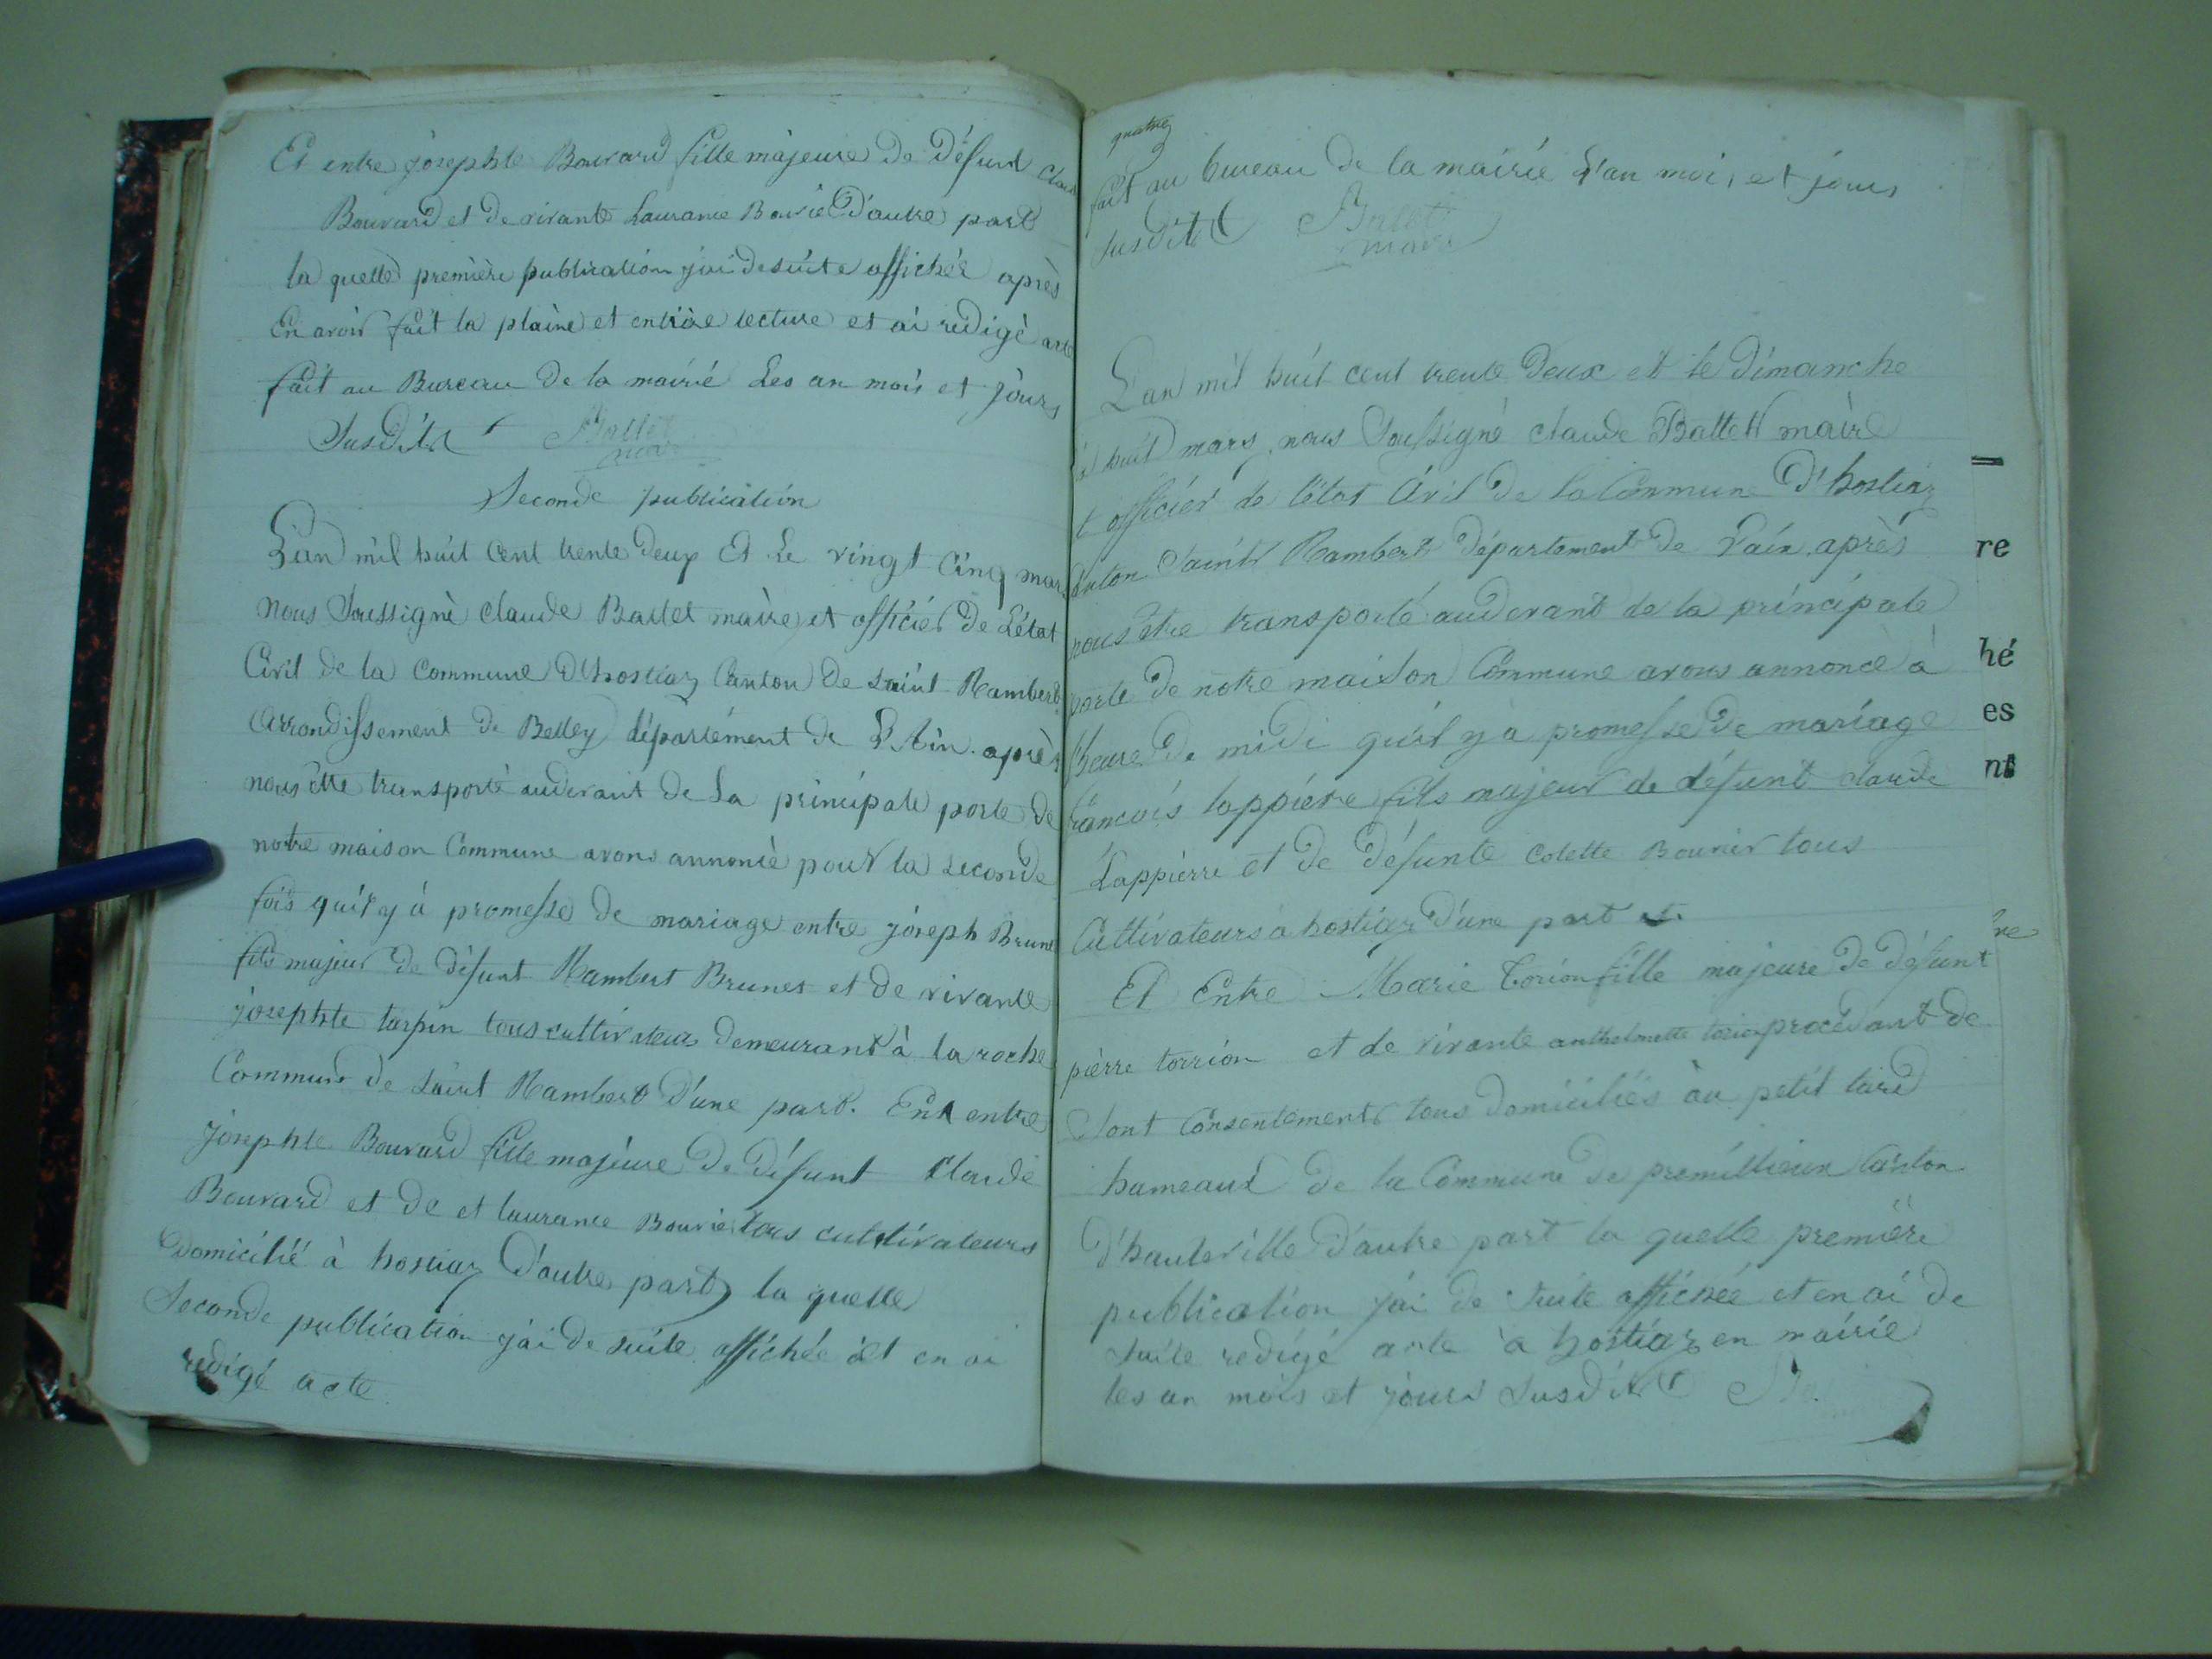 Et entre josephte Bouvard fille majeure de défunt Claude
Bouvard et de vivante Laurance Bouvier d'autre part
la quelle première publication j'ai desuite affichée après
en avoir fait la plaine et entière lecture et ai redigé acte
fait au Bureau de la mairié Les an mois et jours
Susdits Ballet
maire
Seconde publication
L'an mil huit Cent trente deux Et Le vingt Cinq mars
Nous Soussigné claude Ballet maire et officier de L'état
Civil de la Commune D'hostiaz Canton de Saint Rambert
Arrondissement de Belley département de L'Ain après
nous être transporté audevant de La principale porte de
notre maison Commune avons annoncé pour la seconde
fois qu'il y à promesse de mariage entre joseph Brunet
fils majeur de défunt Rambert Brunet et de vivante
josephte tarpin tous cultivateurs demeurant à la roche
Commune de Saint Rambert D'une part. Et entre
Josephte Bouvard fille majeure de défunt Claude
Bouvard et de et laurance Bouvier tous cultivateurs
domicilié à hostiaz D'autre part la quelle
Seconde publication j'ai de suite affichée et en ai
redigé acte
quatre
fait au bureau de la mairie L'an mois et jours
susdits Ballet
maire
L'an mil huit cent trente Deux et le Dimanche
huit mars nous Soussigné claude Ballet maire
et officier de l'état Civil de la Commune D'hostiaz
Canton Saint Rambert département de l'ain après
nous être transporté audevant de la principale
porte de notre maison Commune avons annoncé à
l'heure de midi qu'il y a promesse de mariage
francois lappierre fils majeur de défunt claude
Lappierre et de défunte Colette Bouvier tous
Cultivateurs à hostiaz D'une part et
Et Entre Marie torion fille majeure de défunt
pierre torrion et de vivante anthelmette procédant de
Sont Consentement tous domiciliés au petit
hameaux de la Commune de premillieux Canton
d'hauteville D'autre part la quelle première
publication j'ai de suite affichée et en ai de
suite redigé acte à hostiaz en mairie
les an mois et jours susdits
re
hé
es
nt